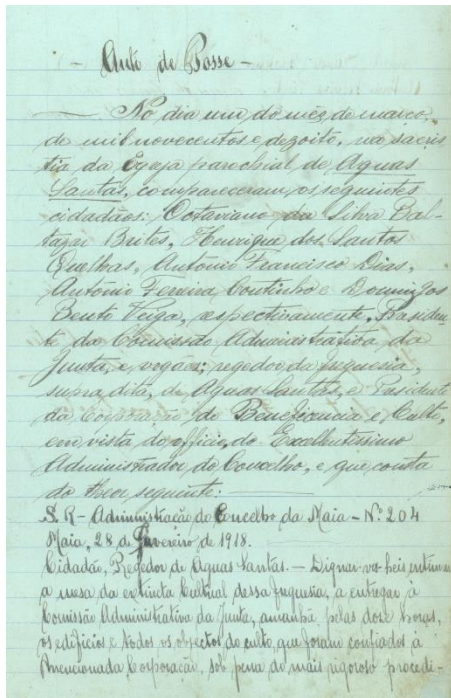 — Auto de Posse —
— No dia um do mêz de março,
de mil novecentos e dezoito, na sacris
tia da Egreja parochial de Aguas
Santas, compareceram, os seguintes
cidadãos: Octaviano da Silva Bal-
tazar Brites, Henrique dos Santos
Quelhas, António Francisco Dias,
António Ferreira Coutinho e Domingos
Bento Veiga, respectivamente, Presiden-
te da Comissão Administrativa da
Junta, e vogáes; regedor da freguesia,
supra dita, de Aguas Santas, e Presidente
da Corporação de Beneficencia e Culto,
em vista do officio, do Excellentissimo
Administrador do Concelho, e que consta
do theor seguinte: —
S. R – Administração do Concelho da Maia – Nº 204
Maia, 28 de Fevereiro de 1918.
Cidadão, Regedor de Aguas Santas. — Dignar-vos-heis intimar
a mesa da extincta Cultual dessa freguesia, a entregar á
Comissão Administrativa da Junta, amanhã, pelas doze horas,
os edificios e todos os objectos do culto, que foram confiados á
mencionada Corporação, sob pena do mais rigoroso procedi-